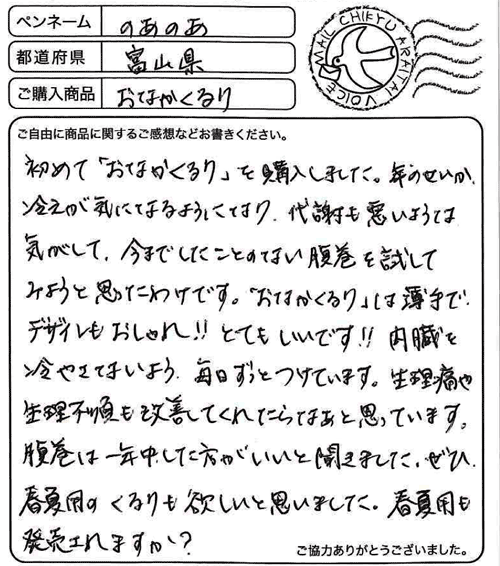 ペンネーム のあのあ
都道府県 富山県
ご購入商品 おなかくるり
MAIL CHIEYU ARAITAI VOICE
ご自由に商品に関するご感想などお書きください。
初めて「おなかくるり」を購入しました。年のせいか、
冷えが気になるようになり、代謝も悪いような
気がして、今までしたことのない腹巻を試して
みようと思ったわけです。「おなかくるり」は薄手で、
デザインもおしゃれ!! とてもいいです!! 内臓を
冷やさないよう、毎日ずっとつけています。生理痛や
生理不順も改善してくれたらなあと思っています。
腹巻は一年中した方がいいと聞きました、ぜひ、
春夏用の くるりも欲しいと思いました。春夏用も
発売されますか?
ご協力ありがとうございました。